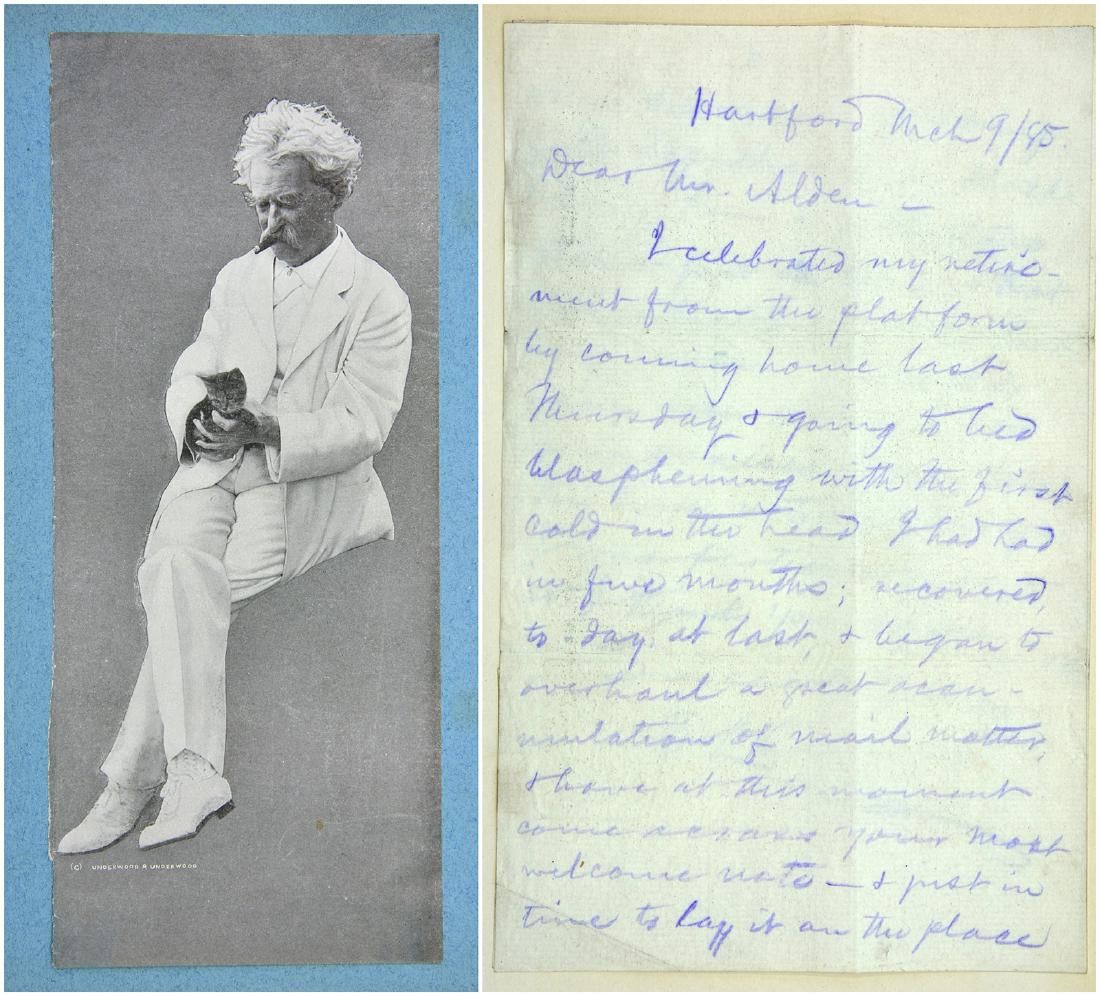 (C) UNDERWOOD & UNDERWOOD
Hartford Mch 9/85.
Dear Mr. Alden —
I celebrated my retire-
ment from the platform
by coming home last
Thursday & going to bed
blaspheming with the first
cold in the head I had had
in five months; recovered,
to-day at last, & began to
overhaul a great accu-
mulation of mail matter,
& have at this moment
come across your most
welcome note — & just in
time to lay it on the place